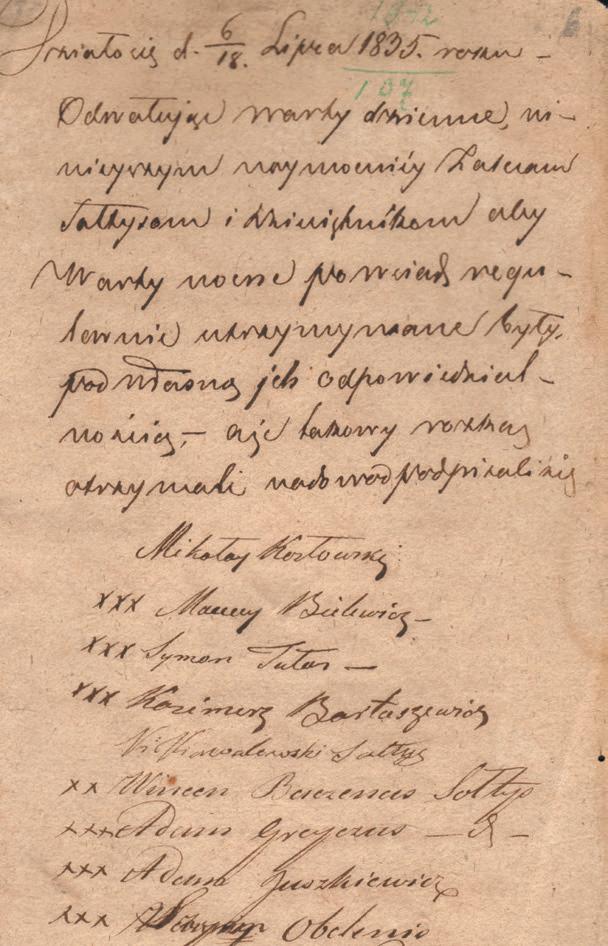 d. 6/18. Lipca 1835. roku –
107
Odwołując warty dzienne, ni-
nieyszym naymocniéy
Sołtysom i Dziesiętnikom aby
Warty nocne po wsiach regu-
larnie utrzymywane były,
pod własną jch odpowiedzial-
nością, – aże takowy rozkaz
otrzymali nadowod podpisali się
Mikołay Kozłowski
xxx Maciey Bielewicz –
xxx Symon Tutas –
xxx Kazimerz Bartaszewicz
Kowalewski Sołtys
xx Wincen Sołtys
xxx Adam Greyczus – d –
xxx Adam Juszkiewicz
xxx